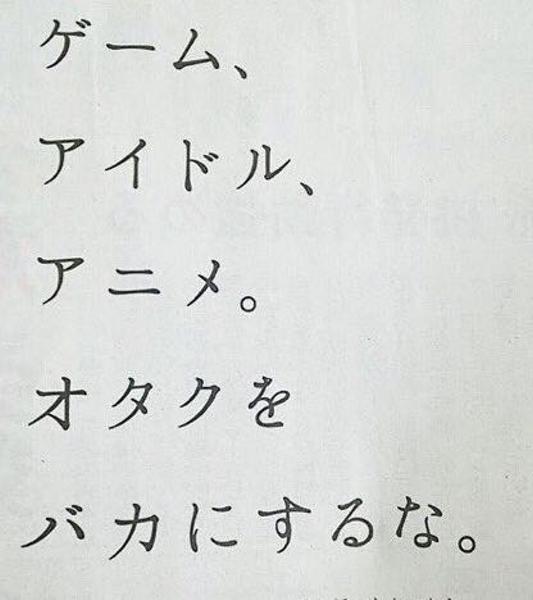 ゲーム、
アイドル、
アニメ。
オタクを
バカにするな。